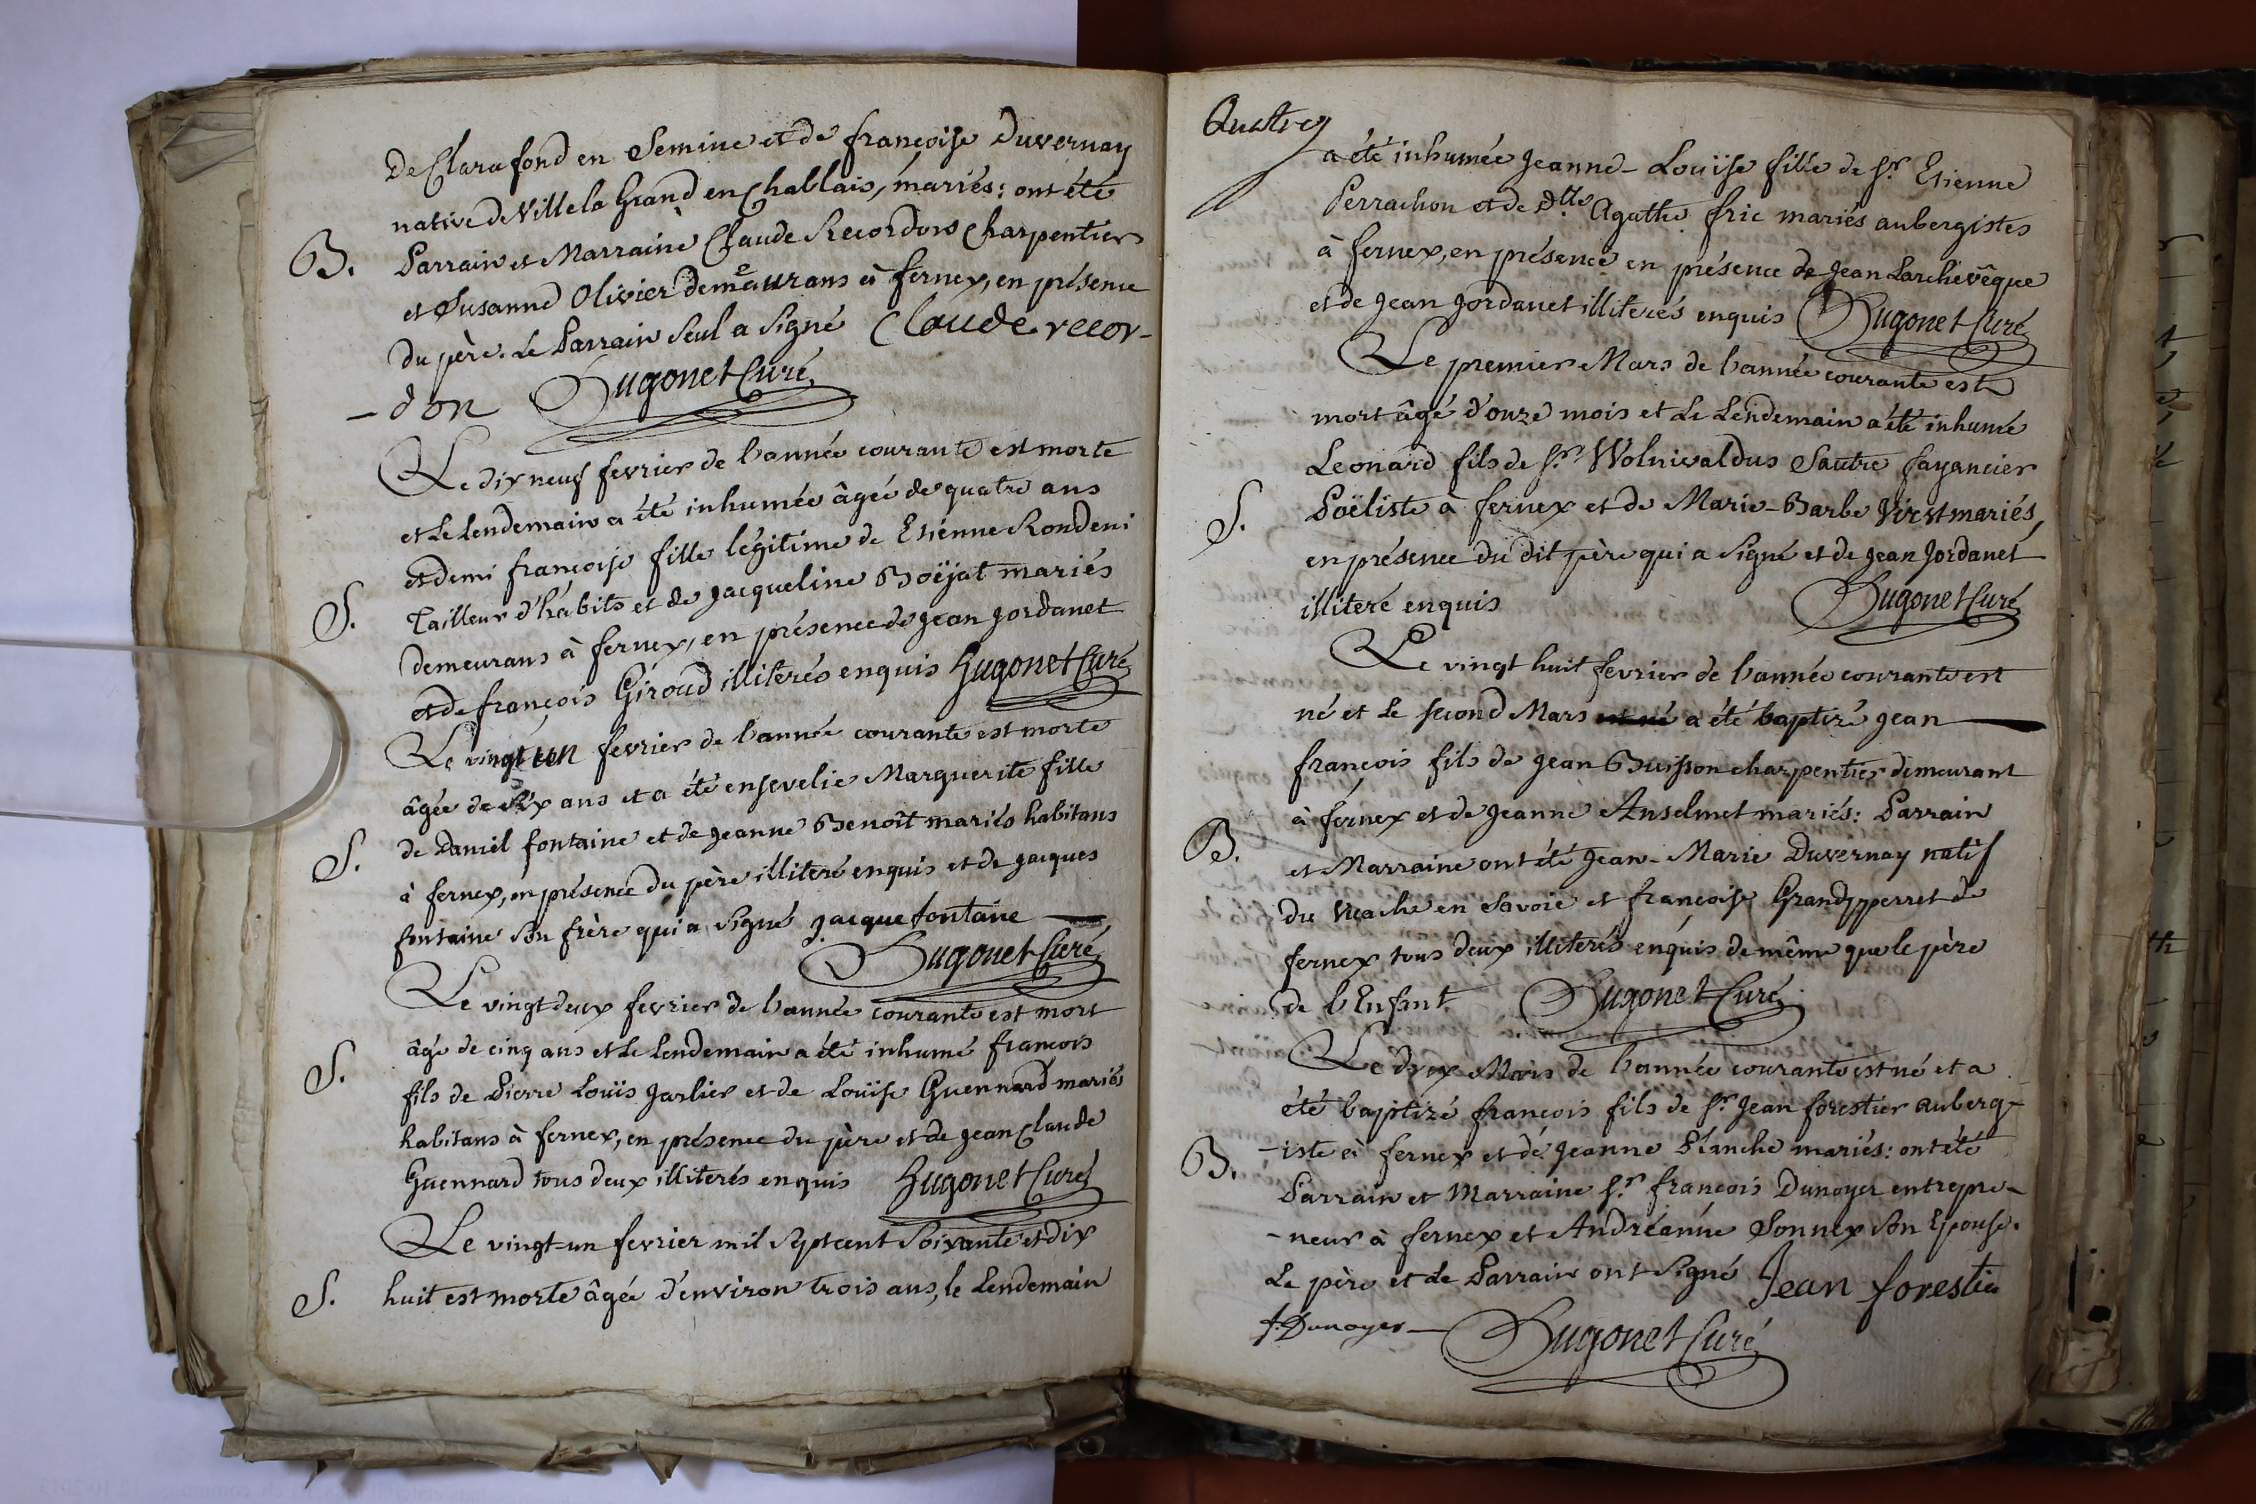 De Clarafond en Semine et de françoise Duvernay
native de Ville la Grand en Chablais, mariés: ont été
B. Parrain et Marraine Claude Recordons charpentier
et Susanne Olivier demeurans à fernex, en présence
du père. Le Parrain seul a signé Claude recor-
-don Hugonet Curé
Le dix neuf fevrier de l'année courante est morte
et le lendemain a été inhumée âgée de quatre ans
et demi françoise fille légitime de Etienne Rondeni
S. Tailleur d'habits et de Jacqueline Boëjat mariés
demeurans à fernex, en présence de Jean Jordanet
et de françois Giroud illiterés enquis Hugonet Curé
Le vingt un fevrier de l'année courante est morte
âgée de six ans et a été ensevelie Marguerite fille
S. de Daniel fontaine et de Jeanne Benoît mariés habitans
à fernex, en présence du père illiteré enquis et de Jacques
fontaine son frère qui a signé Jacque fontaine
Hugonet Curé
Le vingt deux fevrier de l'année courante est mort
S. âgé de cinq ans et le lendemain a été inhumé francois
fils de Pierre Louis Jarlier et de Louïse Guennard mariés
habitans à fernex, en présence du père et de Jean Claude
Guennard tous deux illiterés enquis Hugonet Curé
Le vingt-un fevrier mil sept cent soixante et dix
S. huit est morte âgée d'environ trois ans, le lendemain
Quatre
a été inhumée Jeanne-Louïse fille de Sr. Etienne
Perrachon et de Dlle Agathe fric mariés aubergistes
à fernex, en présence en présence de Jean Larchevêque
et de Jean Jordanet illiterés enquis Hugonet Curé
Le premier Mars de l'année courante est
mort âgé d'onze mois et le lendemain a été inhumé
Leonard fils de Sr. Wolnivaldus Sautre fayancier
S. Poëliste à fernex et de Marie-Barbe Virst mariés,
en présence du dit père qui a signé et de Jean Jordanet
illiteré enquis Hugonet Curé
Le vingt huit fevrier de l'année courante est
né et le second Mars est né a été baptizé Jean
françois fils de Jean Buisson charpentier demeurant
à fernex et de Jeanne Anselmet mariés: Parrain
B. et Marraine ont été Jean-Marie Duvernay natif
du Vuache en Savoie et françoise Grandpperret de
fernex tous deux illiterés enquis de même que le père
de l'Enfant. Hugonet Curé
Le deux Mars de l'année courante est né et a
été baptizé francois fils de Sr. Jean forestier auberg-
B. -iste à fernex et de Jeanne Planche mariés: ont été
Parrain et Marraine Sr. francois Dunoyer entrepre-
-neur à fernex et Andréanne Sonnex son Epouse.
Le père et le Parrain ont signé Jean forestier
f. Dunoyer Hugonet Curé